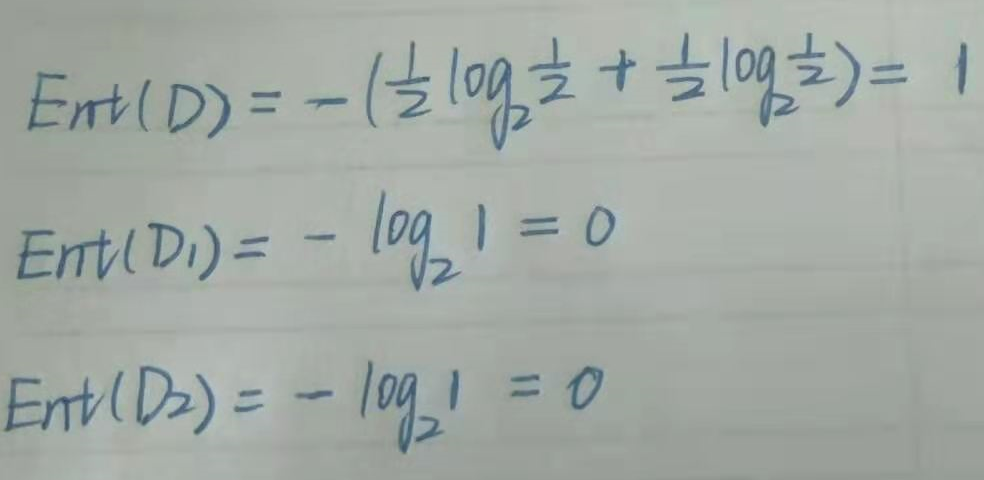 Ent(D) = -(1/2 log₂ 1/2 + 1/2 log₂ 1/2) = 1
Ent(D₁) = - log₂ 1 = 0
Ent(D₂) = - log₂ 1 = 0